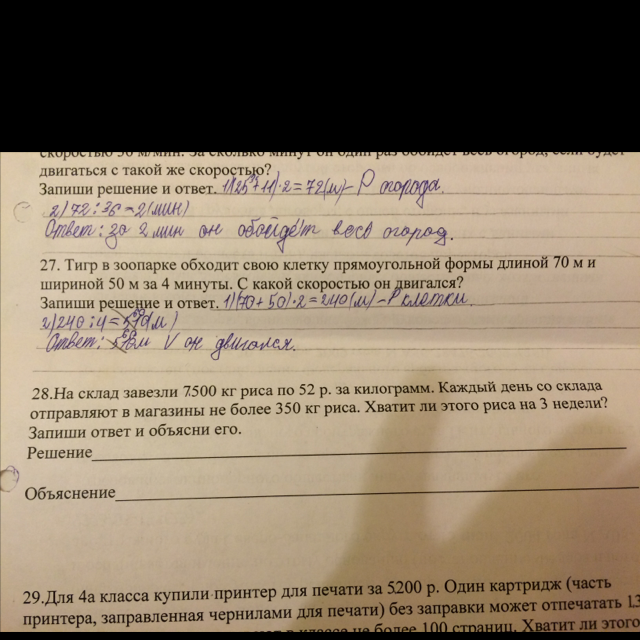 скоростью 36 м/мин. За сколько минут он один раз обойдет весь огород, если будет
двигаться с такой же скоростью?
Запиши решение и ответ. 1)(25+11)·2=72(м)-P огорода.
2)72:36=2(мин)
Ответ: за 2 мин он обойдёт весь огород.
27. Тигр в зоопарке обходит свою клетку прямоугольной формы длиной 70 м и
шириной 50 м за 4 минуты. С какой скоростью он двигался?
Запиши решение и ответ. 1)(70+50)·2=240(м)-P клетки.
2)240:4=60(м)
Ответ: 60м V он двигался.
28.На склад завезли 7500 кг риса по 52 р. за килограмм. Каждый день со склада
отправляют в магазины не более 350 кг риса. Хватит ли этого риса на 3 недели?
Запиши ответ и объясни его.
Решение
Объяснение
29.Для 4а класса купили принтер для печати за 5200 р. Один картридж (часть
принтера, заправленная чернилами для печати) без заправки может отпечатать
в классе не более 100 страниц. Хватит ли этого